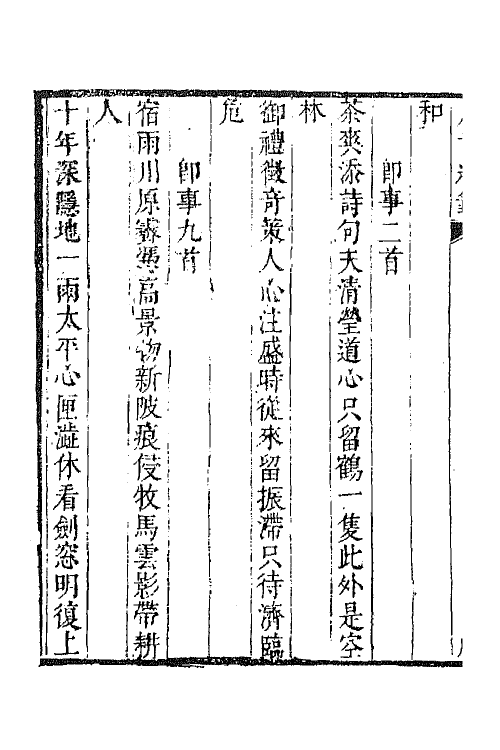 和
卽事二首
茶爽添詩句天清瑩道心只留鶴一隻此外是空
林
御禮徵奇䇿人心注盛時從來留振滯只待濟臨
危
卽事九首
宿雨川原霽憑高景物新陂痕侵牧馬雲影帶耕
人
十年深隱地一雨太平心匣澁休看劍窓明復上